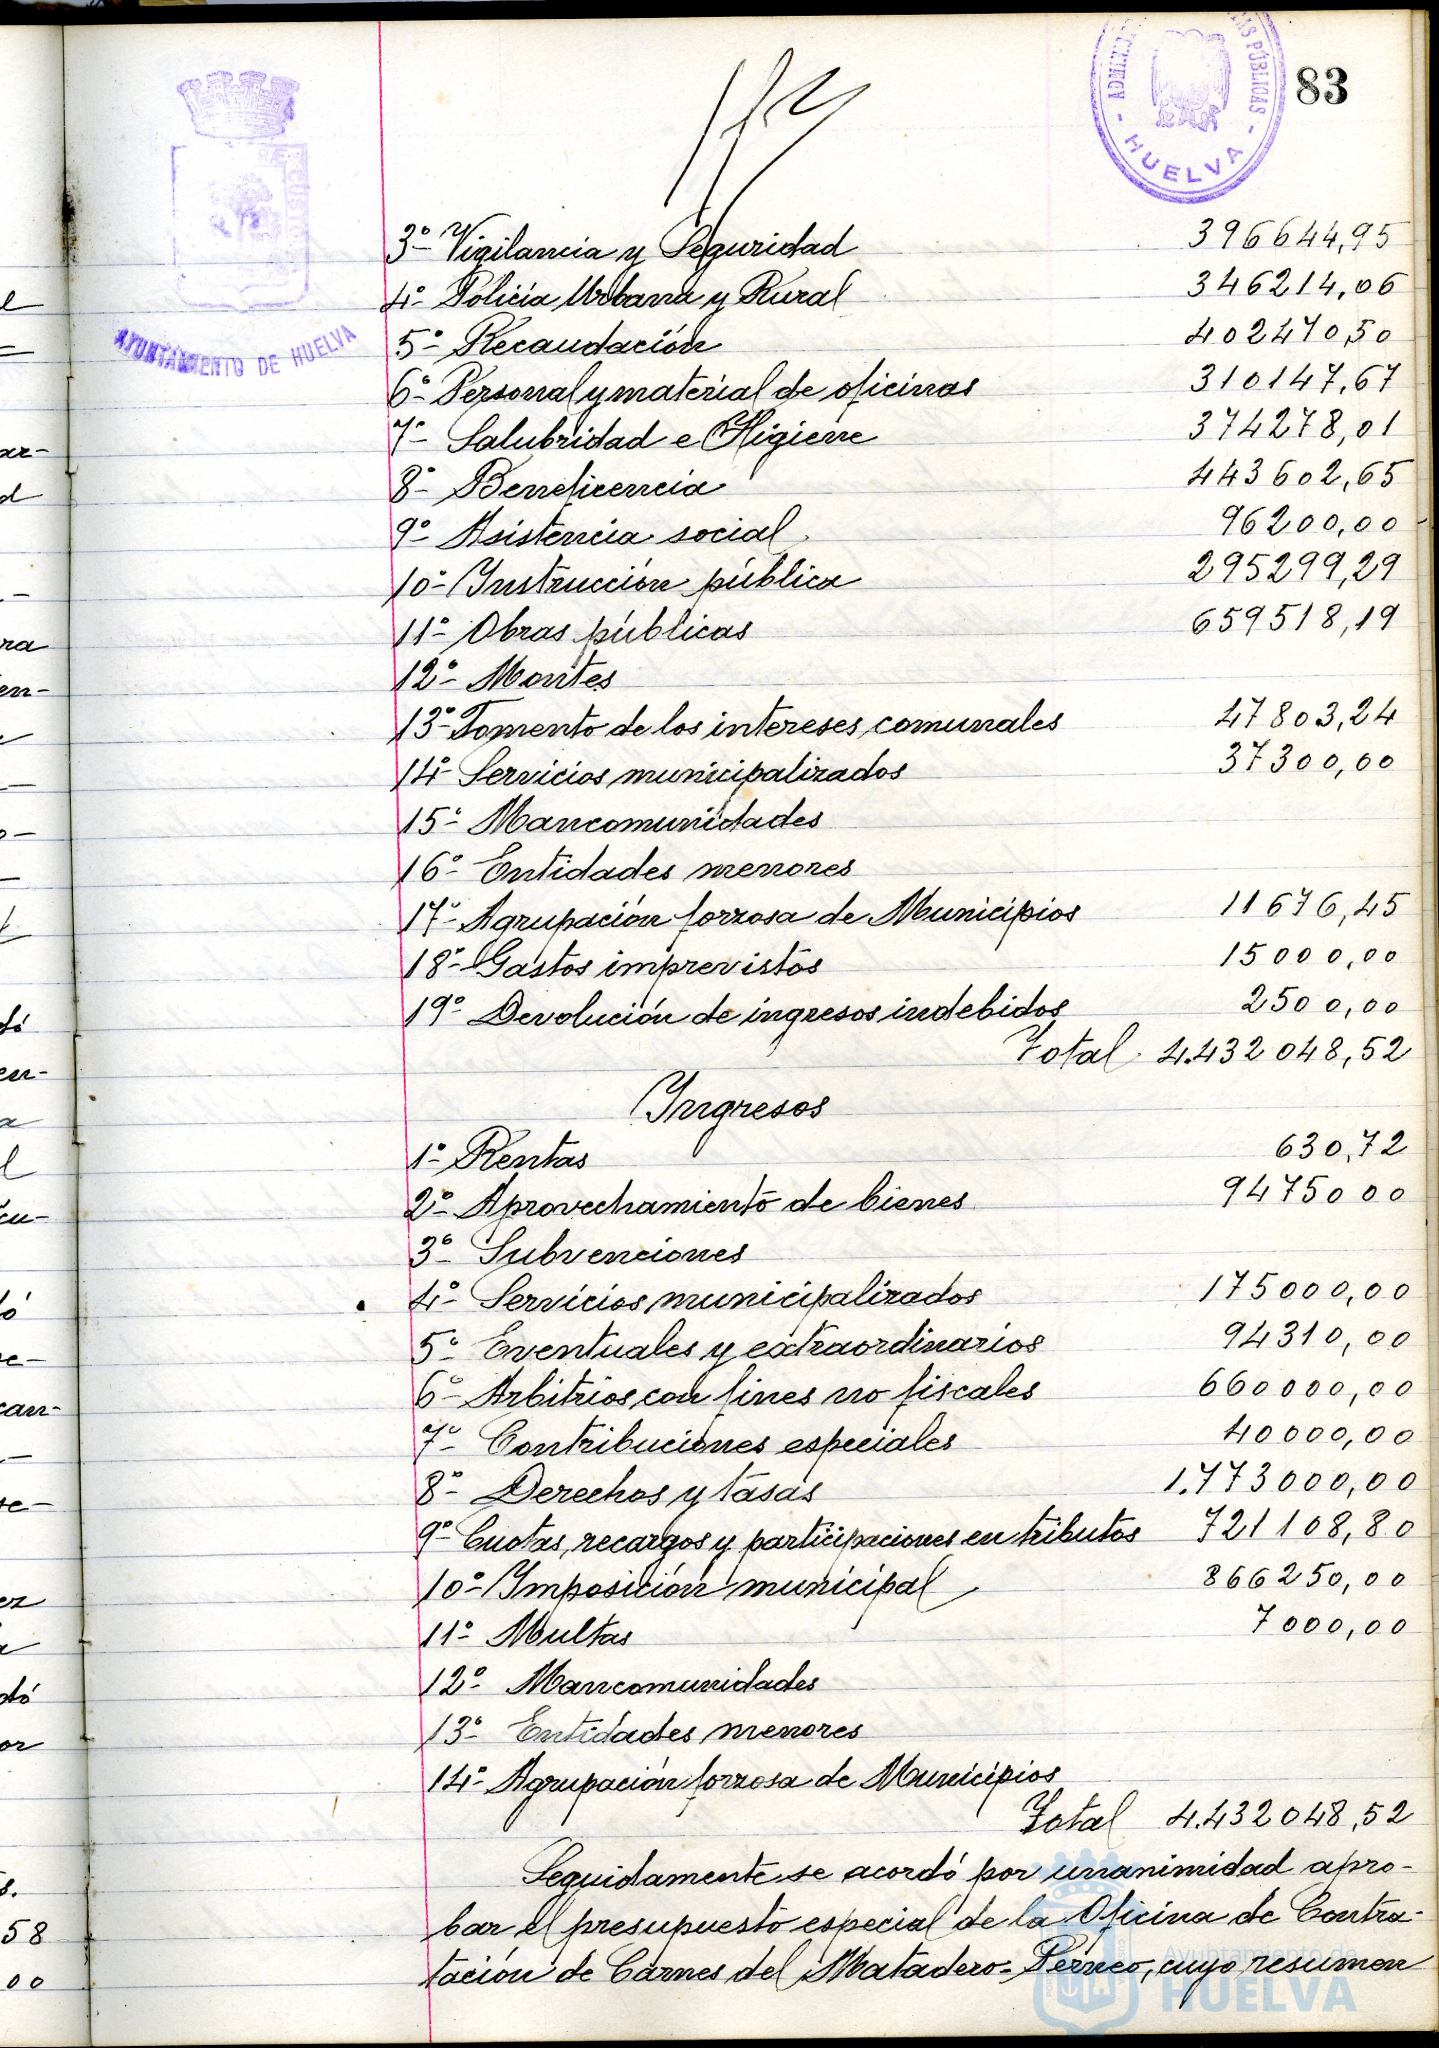 83
ADMINIS
AS PÚBLICAS
- HUELVA -
AYUNTAMIENTO DE HUELVA
3º Vigilancia y Seguridad 396644,95
4º Policía Urbana y Rural 346214,06
5º Recaudación 402470,50
6º Personal y material de oficinas 310147,67
7º Salubridad e Higiene 374278,01
8º Beneficencia 443602,65
9º Asistencia social 96200,00
10º Instrucción pública 295299,29
11º Obras públicas 659518,19
12º Montes
13º Fomento de los intereses comunales 47803,24
14º Servicios municipalizados 37300,00
15º Mancomunidades
16º Entidades menores
17º Agrupación forzosa de Municipios 11676,45
18º Gastos imprevistos 15000,00
19º Devolución de ingresos indebidos 2500,00
Total 4.432048,52
Ingresos
1º Rentas 630,72
2º Aprovechamiento de bienes 94750 00
3º Subvenciones
4º Servicios municipalizados 175000,00
5º Eventuales y extraordinarios 94310,00
6º Arbitrios con fines no fiscales 660000,00
7º Contribuciones especiales 40000,00
8º Derechos y tasas 1.773000,00
9º Cuotas, recargos y participaciones en tributos 721108,80
10º Imposición municipal 866250,00
11º Multas 7000,00
12º Mancomunidades
13º Entidades menores
14º Agrupación forzosa de Municipios
Total 4.432048,52
Seguidamente se acordó por unanimidad apro-
bar el presupuesto especial de la Oficina de Contra-
tación de Carnes del Matadero-Perneo, cuyo resumen
Ayuntamiento de
HUELVA